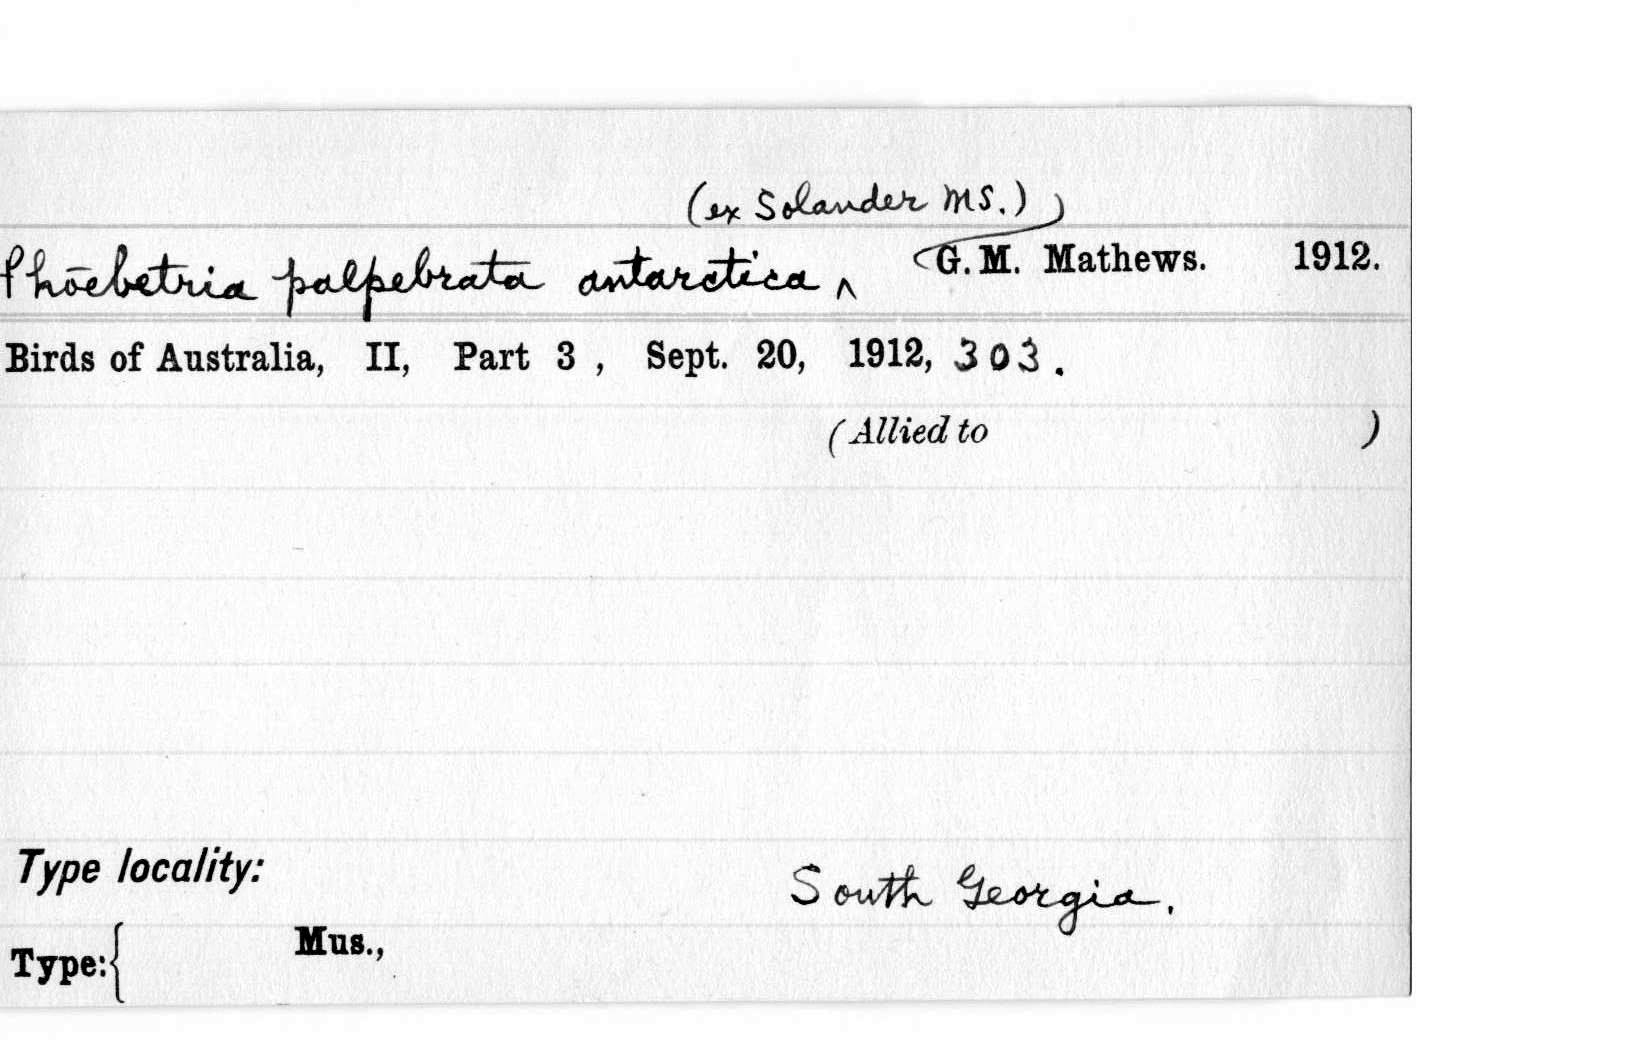 (ex Solander MS.)
Phoebetria palpebrata antarctica ^ G. M. Mathews. 1912.
Birds of Australia, II, Part 3 , Sept. 20, 1912, 303 .
(Allied to )
Type locality:
South Georgia.
Type: { Mus.,